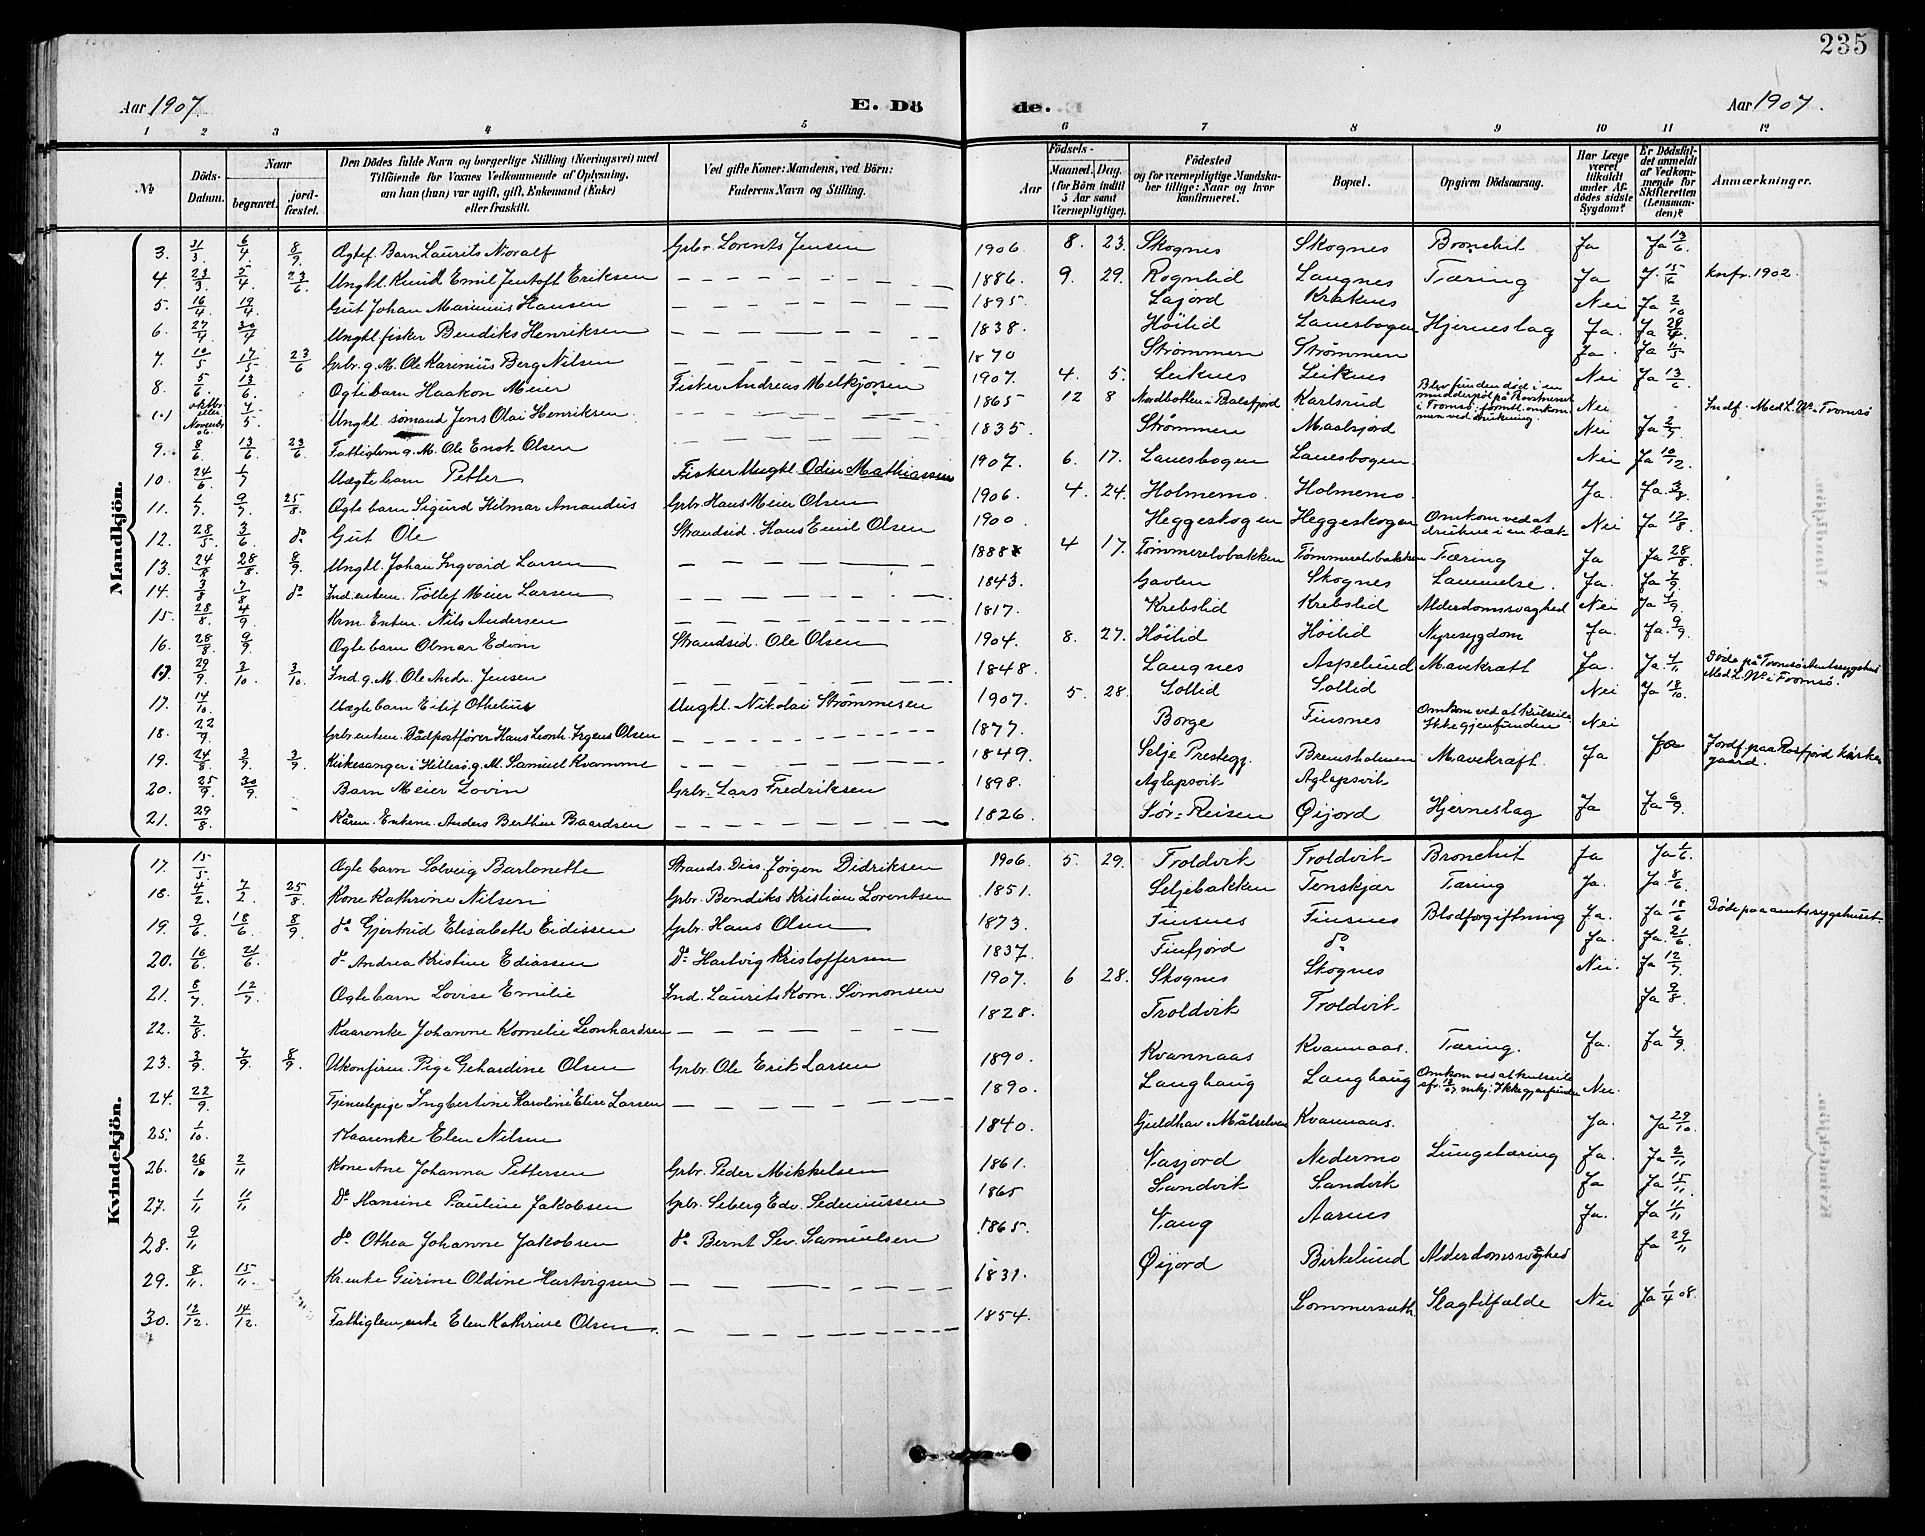 235
Aar 1907. E. Dö de. Aar 1907.
1 2 3 4 5 6 7 8 9 10 11 12
No
Döds-Datum.
Naar
begravet.
jord-fæstet.
Den Dödes fulde Navn og borgerlige Stilling (Næringsvei) med
Tilföiende for Voxnes Vedkommende af Oplysning,
om han (hun) var ugift, gift, Enkemand (Enke)
eller fraskilt.
Ved gifte Koner: Mandens, ved Börn:
Faderens Navn og Stilling.
Födsels-
Aar
Maaned. Dag.
(for Börn indtil
5 Aar samt
Værnepligtige).
Födested
og for værnepligtige Mandska-
ber tillige: Naar og hvor
konfirmeret.
Bopæl.
Opgiven Dödsaarsag.
Har Læge
været
tilkaldt
under Af-
dödes sidste
Sygdom?
Er Dödsfal-
det anmeldt
af Vedkom-
mende for
Skifteretten
(Lensman-
den)?
Anmærkninger.
Mandkjön.
3. 31/3 6/4 8/9 Ægtef. Barn Laurits Noralf Grbr. Lorents Jensen 1906 8. 23. Skognes Skognes Bronchit Ja Ja 13/6
4. 23/3 2/4 23/6 Ungkl. Knud Emil Jentoft Eriksen 1886. 9. 29. Rognlid Langnes Tæring Ja J. 15/6 Konfr. 1902.
5. 16/4 19/4 Gut Johan Marinius Hansen 1895. Lajord Kraknes Nei Ja 2/10
6. 27/4 30/4 Ungkl fisker Bendiks Henriksen 1838. Höilid Lanesbogen Hjerneslag Ja. Ja 28/4
7. 10/5 17/5 23/6 Grbr. g. M. Ole Karenius Berg Nilsen 1870 Strömmen Strömmen Ja. Ja 11/5
8. 5/6 13/6 Ægtebarn Haakon Meier Fisker Andreas Melkjorsen 1907. 4. 5. Leiknes Leiknes Nei Ja 13/6
oktbr. eller Novembr 06 4/5 Ungkl. sömand Jens Olai Henriksen 1865 12 8 Nordbotten i Balsfjord Karlsrud Blev funden död i en mudderpöl på Provstneset i Tromsö, formtl. omkommen ved drukning. Nei Indf. Med. L. No. Tromsö
9. 8/6 13/6 23/6 Fattiglem g. M. Ole Enok Olsen 1835. Strömmen Maalsjord Nei Ja 2/7
10. 24/6 1/7 Uægte barn Petter Fisker Ungkl. Odin Mathiassen 1907. 6. 17. Lanesbogen Lanesbogen. Nei Ja 10/12
11. 1/7 9/7 25/8 Ægte barn Sigurd Hilmar Amandus Grbr. Hans Meier Olsen 1906. 4. 24. Holmemo. Holmemo. Ja. Ja 3/7
12. 28/5 3/6 do Gut Ole Strandsid. Hans Emil Olsen 1900. Heggeskogen Heggeskogen Omkom ved at drukne i en bæk. Nei Ja 12/8
13. 24/8 28/8 8/9 Ungkl. Johan Ingvard Larsen 1888 4 17. Tömmerelvbakken Tömmerelvbakken Tæring Ja Ja 28/8
14. 3/8 7/8 do Ind. enkem. Tollef Meier Larsen 1843. Gavlen Skognes Lammelse. Ja. Ja 7/9
15. 28/8. 4/9 Krm. Enkem. Nils Andersen 1817. Krebslid Krebslid Alderdomssvaghed Nei Ja 4/9.
16. 28/8 9/9 Ægte barn Olmar Edvin Strandsid. Ole Olsen 1904. 8. 27. Höilid Höilid Nyresygdom Ja. Ja. 9/9
29/9 3/10 3/10 Ind. g. M. Ole Andr. Jensen 1848. Langnes Aspelund Mavekræft Ja. Ja 4/11 Döde på Tromsö Amtssygehus Med. L. No i Tromsö.
17. 14/10 Uægte barn Eilif Othelius Ungkl. Nikolai Strömmesen 1907. 5. 28. Sollid Sollid Nei Ja 18/10
18. 22/9 Grbr. enkem. Dådpostförer Hans Leonh. Irgens Olsen 1877. Borge Finsnes Omkom ved at kulseile Ikke gjenfunden Nei
19. 24/8 3/9 3/9 Kirkesanger i Hillesö g. M. Samuel Kvamme 1849. Selje Prestegj. Bremsholmen Mavekræft. Ja Ja Jordf. paa Rosfjord kirkegaard.
20. 25/9 30/9. Barn Meier Lovin Grbr. Lars Fredriksen 1898. Aglapsvik Aglapsvik
21. 29/8 Kåren. Enkem. Anders Berthin Baardsen 1826. Sör-Reisen Öijord Hjerneslag Ja Ja 6/9
Kvindekjön.
17. 15/5. Ægte barn Solveig Barlonette Strands. Diss. Jörgen Didriksen 1906 5. 29. Troldvik Troldvik Bronchit Ja Ja 1/6.
18. 4/2 7/2 25/8 Kone Kathrine Nilsen Grbr. Bendiks Kristian Lorentsen 1851. Seljebakken Tenskjær Tæring Ja. Ja. 8/6
19. 9/6 18/6 8/9 do Gjertrud Elisabeth Eidissen Grbr. Hans Olsen 1873. Finsnes Finsnes Blodforgiftning Ja. Ja. 18/6 Döde paa amtssygehuset.
20. 16/6 21/6 do Andrea Kristine Ediassen Do Hartvig Kristoffersen 1837. Finfjord do Ja. Ja. 21/6
21. 8/7 12/7 Ægte barn Lovise Emilie Ind. Laurits Korn. Simonsen 1907. 6 28. Skognes Skognes Nei. Ja 12/7
22. 2/8. Kaarenke Johanne Kornelie Leonhardsen 1828. Troldvik Troldvik Ja 9/8.
23. 3/9 7/9 8/9 Ukonfirm. Pige Gehardine Olsen Grbr. Ole Erik Larsen 1890. Kvannaas Kvannaas. Tæring. Ja. Ja 7/9
24. 22/9. Tjenestepige Ingbertine Karoline Elise Larsen 1890. Langhaug Langhaug Omkom ved at kulseile Ikke gjenfunden Nei.
25. 1/10. Kaarenke Elen Nilsen 1840. Guldhav i Målselven Kvannaas. Ja. Ja 29/10.
26. 26/10 2/11 Kone Ane Johanna Pettersen Grbr. Peder Mikkelsen 1861. Vasjord Nedermo Lungetæring Ja. Ja 2/11
27. 1/11 11/11 Do Hansine Pauline Jakobsen Grbr. Seberg Edv. Sedeniussen 1865 Sandvik Sandvik Ja Ja 15/11
28. 9/11 do Othea Johanne Jakobsen do Bernt Sev. Samuelsen 1865. Vang Aarnes Ja. Ja 11/11
29. 8/11. 15/11. Kr. enke Gurine Oldine Hartvigsen 1831. Öijord Birkelund Alderdomssvaghed Ja 29/11
30. 12/12. 14/12. Fattiglem enke Elen Kathrine Olsen. 1854. Sommersæth. Slagtilfælde Nei Ja 1/4 08.